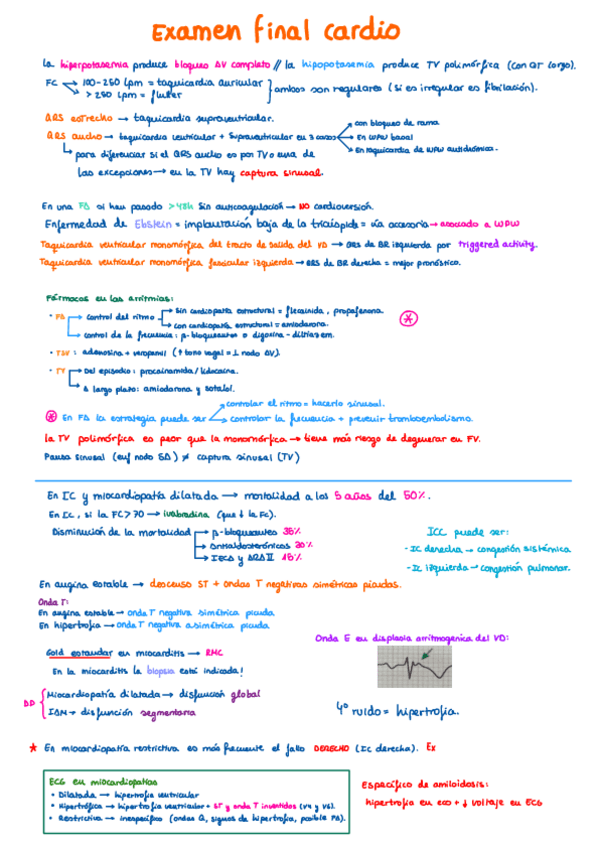 Examen final cardio
La hiperpotasemia produce bloqueo AV completo // la hipopotasemia produce TV polimórfica (con QT largo).
FC
100-250 lpm = taquicardia auricular
> 250 lpm = flutter
ambos son regulares (si es irregular es fibrilación).
QRS estrecho → taquicardia supraventricular.
QRS ancho → taquicardia ventricular + supraventricular en 3 casos
con bloqueo de rama
en WPW basal
en taquicardia de WPW antidrómica.
para diferenciar si el QRS ancho es por TV o una de
las excepciones → en la TV hay captura sinusal.
En una FA si han pasado >48h sin anticoagulación → NO cardioversión.
Enfermedad de Ebstein = implantación baja de la tricúspide = vía accesoria → asociado a WPW
Taquicardia ventricular monomórfica del tracto de salida del VD → QRS de BR izquierda por triggered activity.
Taquicardia ventricular monomórfica fascicular izquierda → QRS de BR derecha = mejor pronóstico.
Fármacos en las arritmias:
• FA
control del ritmo
Sin cardiopatía estructural = flecainida, propafenona.
con cardiopatía estructural = amiodarona.
control de la frecuencia: β-bloqueantes o digoxina - diltiazem.
• TSV: adenosina + verapamil (↑ tono vagal = ↓ nodo AV).
• TV
Del episodio: procainamida / lidocaína.
A largo plazo: amiodarona y sotalol.
En FA la estrategia puede ser
controlar el ritmo = hacerlo sinusal.
controlar la frecuencia + prevenir tromboembolismo.
La TV polimórfica es peor que la monomórfica → tiene más riesgo de degenerar en FV.
Pausa sinusal (enf nodo SA) ≠ captura sinusal (TV)
En IC y miocardiopatía dilatada → mortalidad a los 5 años del 50%.
En IC, si la FC > 70 → ivabradina (que ↓ la FC).
Disminución de la mortalidad
β-bloqueantes 35%
Antialdosterónicos 30%
IECA y ARA II 15%
ICC puede ser:
- IC derecha → congestión sistémica
- IC izquierda → congestión pulmonar.
En angina estable → descenso ST + ondas T negativas simétricas picudas.
Onda T:
En angina estable → onda T negativa simétrica picuda
En hipertrofia → onda T negativa asimétrica picuda
Gold estandar en miocarditis → RMC
En la miocarditis la biopsia está indicada!
Onda E en displasia arritmogénica del VD:
DD
Miocardiopatía dilatada → disfunción global
IAM → disfunción segmentaria
4º ruido = hipertrofia.
* En miocardiopatía restrictiva es más frecuente el fallo DERECHO (IC derecha). Ex
ECG en miocardiopatías
• Dilatada → hipertrofia ventricular
• Hipertrófica → hipertrofia ventricular + ST y onda T invertidos (V4 y V6).
• Restrictiva → inespecífico (ondas Q, signos de hipertrofia, posible FA).
Específico de amiloidosis:
hipertrofia en eco + ↓ voltaje en ECG